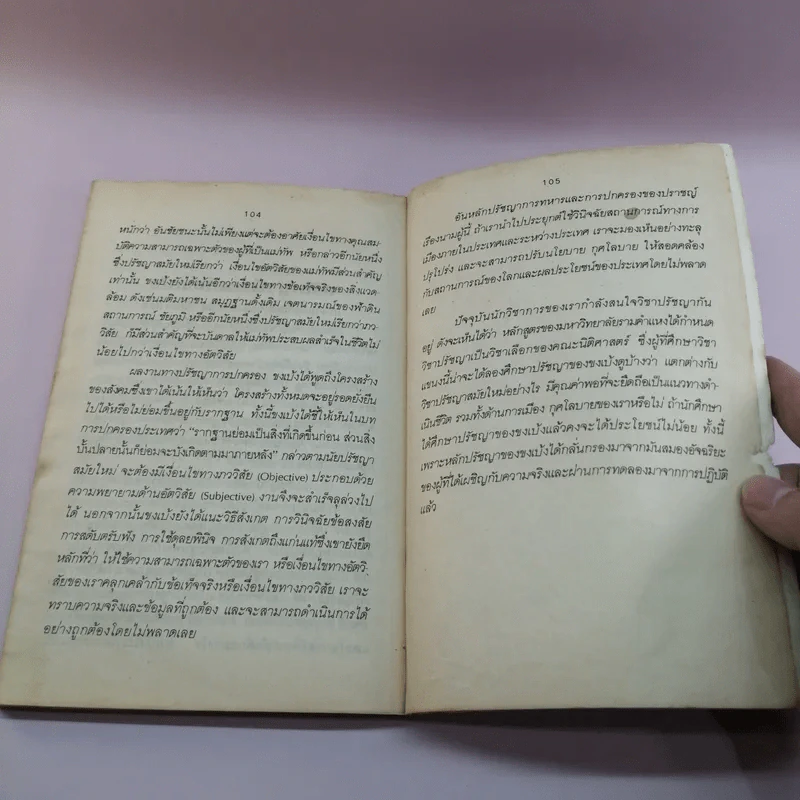 104
หนักว่า อันชัยชนะนั้นไม่เพียงแต่จะต้องอาศัยเงื่อนไขทางคุณสม-
บัติความสามารถเฉพาะตัวของผู้ที่เป็นแม่ทัพ หรือกล่าวอีกนัยหนึ่ง
ซึ่งปรัชญาสมัยใหม่เรียกว่า เงื่อนไขอัตวิสัยของแม่ทัพมีส่วนสำคัญ
เท่านั้น ขงเบ้งยังได้เน้นอีกว่าเงื่อนไขทางข้อเท็จจริงของสิ่งแวด-
ล้อม ดังเช่นมติมหาชน สมุฏฐานดั้งเดิม เจตนารมณ์ของฟ้าดิน
สถานการณ์ ชัยภูมิ หรืออีกนัยหนึ่งซึ่งปรัชญาสมัยใหม่เรียกว่าภว-
วิสัย ก็มีส่วนสำคัญที่จะบันดาลให้แม่ทัพประสบผลสำเร็จในชีวิตไม่
น้อยไปกว่าเงื่อนไขทางอัตวิสัย
ผลงานทางปรัชญาการปกครอง ขงเบ้งได้พูดถึงโครงสร้าง
ของสังคมซึ่งเขาได้เน้นให้เห็นว่า โครงสร้างทั้งหมดจะอยู่รอดยั่งยืน
ไปได้หรือไม่ย่อมขึ้นอยู่กับรากฐาน ทั้งนี้ขงเบ้งได้ชี้ให้เห็นในบท
การปกครองประเทศว่า “รากฐานย่อมเป็นสิ่งที่เกิดขึ้นก่อน ส่วนสิ่ง
บั้นปลายนั้นก็ย่อมจะบังเกิดตามมาภายหลัง” กล่าวตามนัยปรัชญา
สมัยใหม่ จะต้องมีเงื่อนไขทางภววิสัย (Objective) ประกอบด้วย
ความพยายามด้านอัตวิสัย (Subjective) งานจึงจะสำเร็จลุล่วงไป
ได้ นอกจากนั้นขงเบ้งยังได้แนะวิธีสังเกต การวินิจฉัยข้อสงสัย
การสดับตรับฟัง การใช้ดุลยพินิจ การสังเกตถึงแก่นแท้ซึ่งเขายังยึด
หลักที่ว่า ให้ใช้ความสามารถเฉพาะตัวของเรา หรือเงื่อนไขทางอัตวิ-
สัยของเราคลุกเคล้ากับข้อเท็จจริงหรือเงื่อนไขทางภววิสัย เราจะ
ทราบความจริงและข้อมูลที่ถูกต้อง และจะสามารถดำเนินการได้
อย่างถูกต้องโดยไม่พลาดเลย
105
อันหลักปรัชญาการทหารและการปกครองของปราชญ์
เรืองนามผู้นี้ ถ้าเรานำไปประยุกต์ใช้วินิจฉัยสถานการณ์ทางการ
เมืองภายในประเทศและระหว่างประเทศ เราจะมองเห็นอย่างทะลุ
ปรุโปร่ง และจะสามารถปรับนโยบาย กุศโลบาย ให้สอดคล้อง
กับสถานการณ์ของโลกและผลประโยชน์ของประเทศโดยไม่พลาด
เลย
ปัจจุบันนักวิชาการของเรากำลังสนใจวิชาปรัชญากัน
อยู่ ดังจะเห็นได้ว่า หลักสูตรของมหาวิทยาลัยรามคำแหงได้กำหนด
วิชาปรัชญาเป็นวิชาเลือกของคณะนิติศาสตร์ ซึ่งผู้ที่ศึกษาวิชา
แขนงนี้น่าจะได้ลองศึกษาปรัชญาของขงเบ้งดูบ้างว่า แตกต่างกับ
วิชาปรัชญาสมัยใหม่อย่างไร มีคุณค่าพอที่จะยึดถือเป็นแนวทางดำ-
เนินชีวิต รวมทั้งด้านการเมือง กุศโลบายของเราหรือไม่ ถ้านักศึกษา
ได้ศึกษาปรัชญาของขงเบ้งแล้วคงจะได้ประโยชน์ไม่น้อย ทั้งนี้
เพราะหลักปรัชญาของขงเบ้งได้กลั่นกรองมาจากมันสมองอัจฉริยะ
ของผู้ที่ได้เผชิญกับความจริงและผ่านการทดลองมาจากการปฏิบัติ
แล้ว